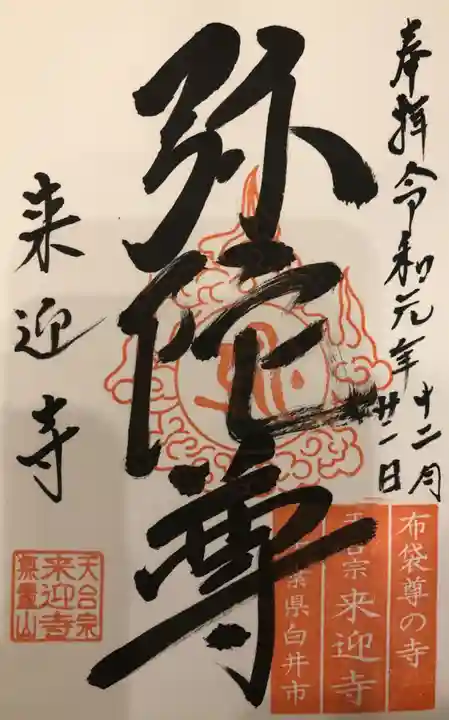 奉拝 令和元年十二月
廿一日
弥陀尊
来迎寺
布袋尊の寺
天台宗 来迎寺
千葉県白井市
天台宗
来迎寺